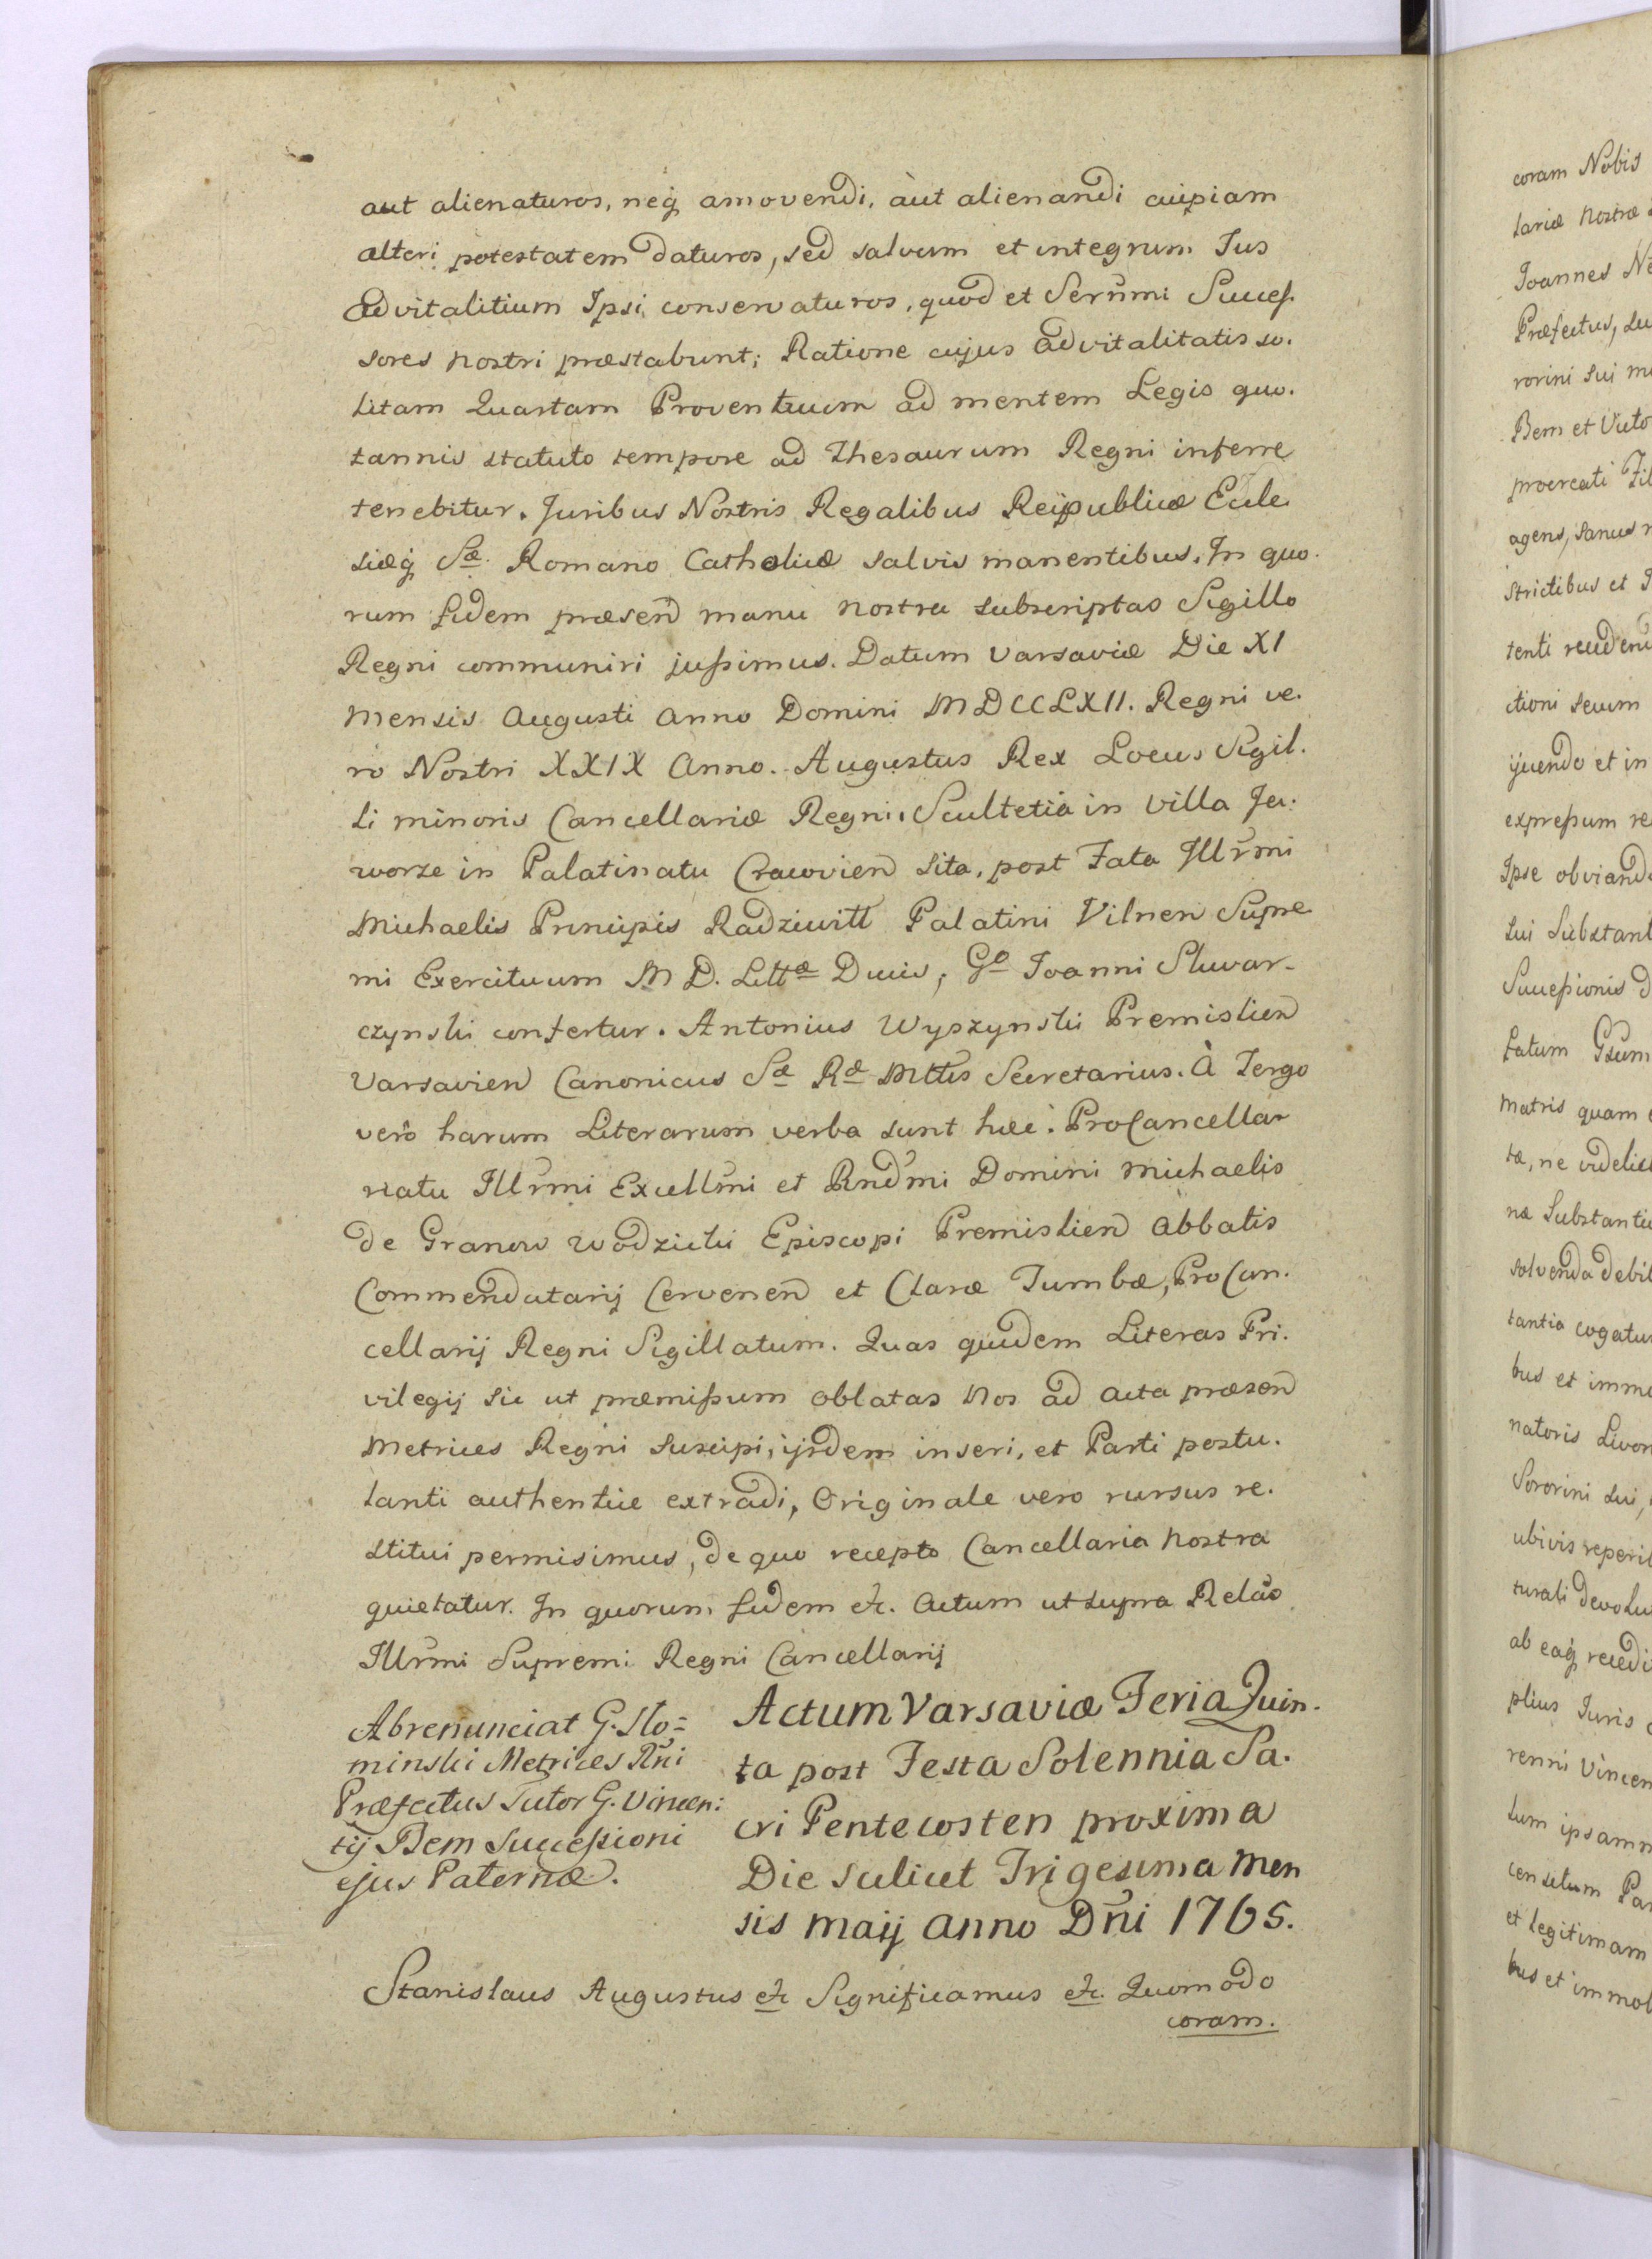 aut alienaturos, neq. amovendi, aut alienandi cuipiam
alteri potestatem daturos, sed salvum et integrum Jus
Advitalitium Ipsi conservaturos, quod et Serūmi Succes.
sores Nostri præstabunt; Ratione cujus Advitalitatis so.
litam Quartam Proventuum ad mentem Legis quo.
tannis statuto tempore ad Thesaurum Regni inferre
tenebitur. Juribus Nostris Regalibus Reipublicæ Eccle
siæq. Sæ. Romano Catholicæ salvis manentibus. In quo.
rum fidem præsend manu nostra subscriptas Sigillo
Regni communiri jussimus. Datum Varsaviæ Die XI
Mensis Augusti Anno Domini MDCCLXII. Regni ve.
ro Nostri XXIX Anno. Augustus Rex Locus Sigil.
li minoris Cancellariæ Regni. Scultetia in Villa Ja.
worze in Palatinatu Cracovien sita, post Fata Illr̄mi
Michaelis Principis Radziwiłł Palatini Vilnen Supre
mi Exercituum M D. Littæ Ducis, Go Joanni Skwar-
czynski confertur. Antonius Wyszynski Premislien
Varsavien Canonicus Sæ Ræ Mttis Secretarius. À Tergo
verò harum Literarum verba sunt hæc: ProCancellar
riatu Illr̄mi Excellm̄i et Rnd̄mi Domini Michaelis
de Granow Wodzicki Episcopi Premislien Abbatis
Commendatarij Cervenen et Claræ Tumbæ, ProCan.
cellarij Regni Sigillatum. Quas quidem Literas Pri.
vilegij sic ut præmissum oblatas Nos ad Acta præsen
Metrices Regni suscipi, ijsdem inseri, et Parti postu.
lanti authentice extradi, Originale vero rursus re.
stitui permisimus, de quo recepto Cancellaria Nostra
quietatur. In quorum fidem etc. Actum ut supra Relāo
Illr̄mi Supremi Regni Cancellarij
Abrenunciat G. Sło=
minski Metrices Rn̄i
Præfectus Tutor G. Vincen:
tij Bem Successioni
ejus Paternæ.
Actum Varsaviæ Feria Quin.
ta post Festa Solennia Sa.
cri Pentecosten proxima
Die scilicet Trigesima Men
sis Maij Anno Dn̄i 1765.
Stanislaus Augustus etc Significamus etc. Quomodo
coram.
coram Nobis
lariæ Nostræ
Joannes
Præfectus,
rorini sui
Bem et
procreati
agens, sanus
strictibus et
tenti
ctioni seum
ijuendo et in
expressum re
Ipse
sui Substant
Successionis d
fatum
Matris quam
tæ, ne videlic
næ Substantiæ
solvenda debit
tantia cogatur
bus et immo
natoris Livon
Sororini sui,
ubivis reperib
turali devolu
ab eaq. recedi
plius Juris
renni Vincen
lum ipsam
censitum Pa
et legitimam
bus et immob